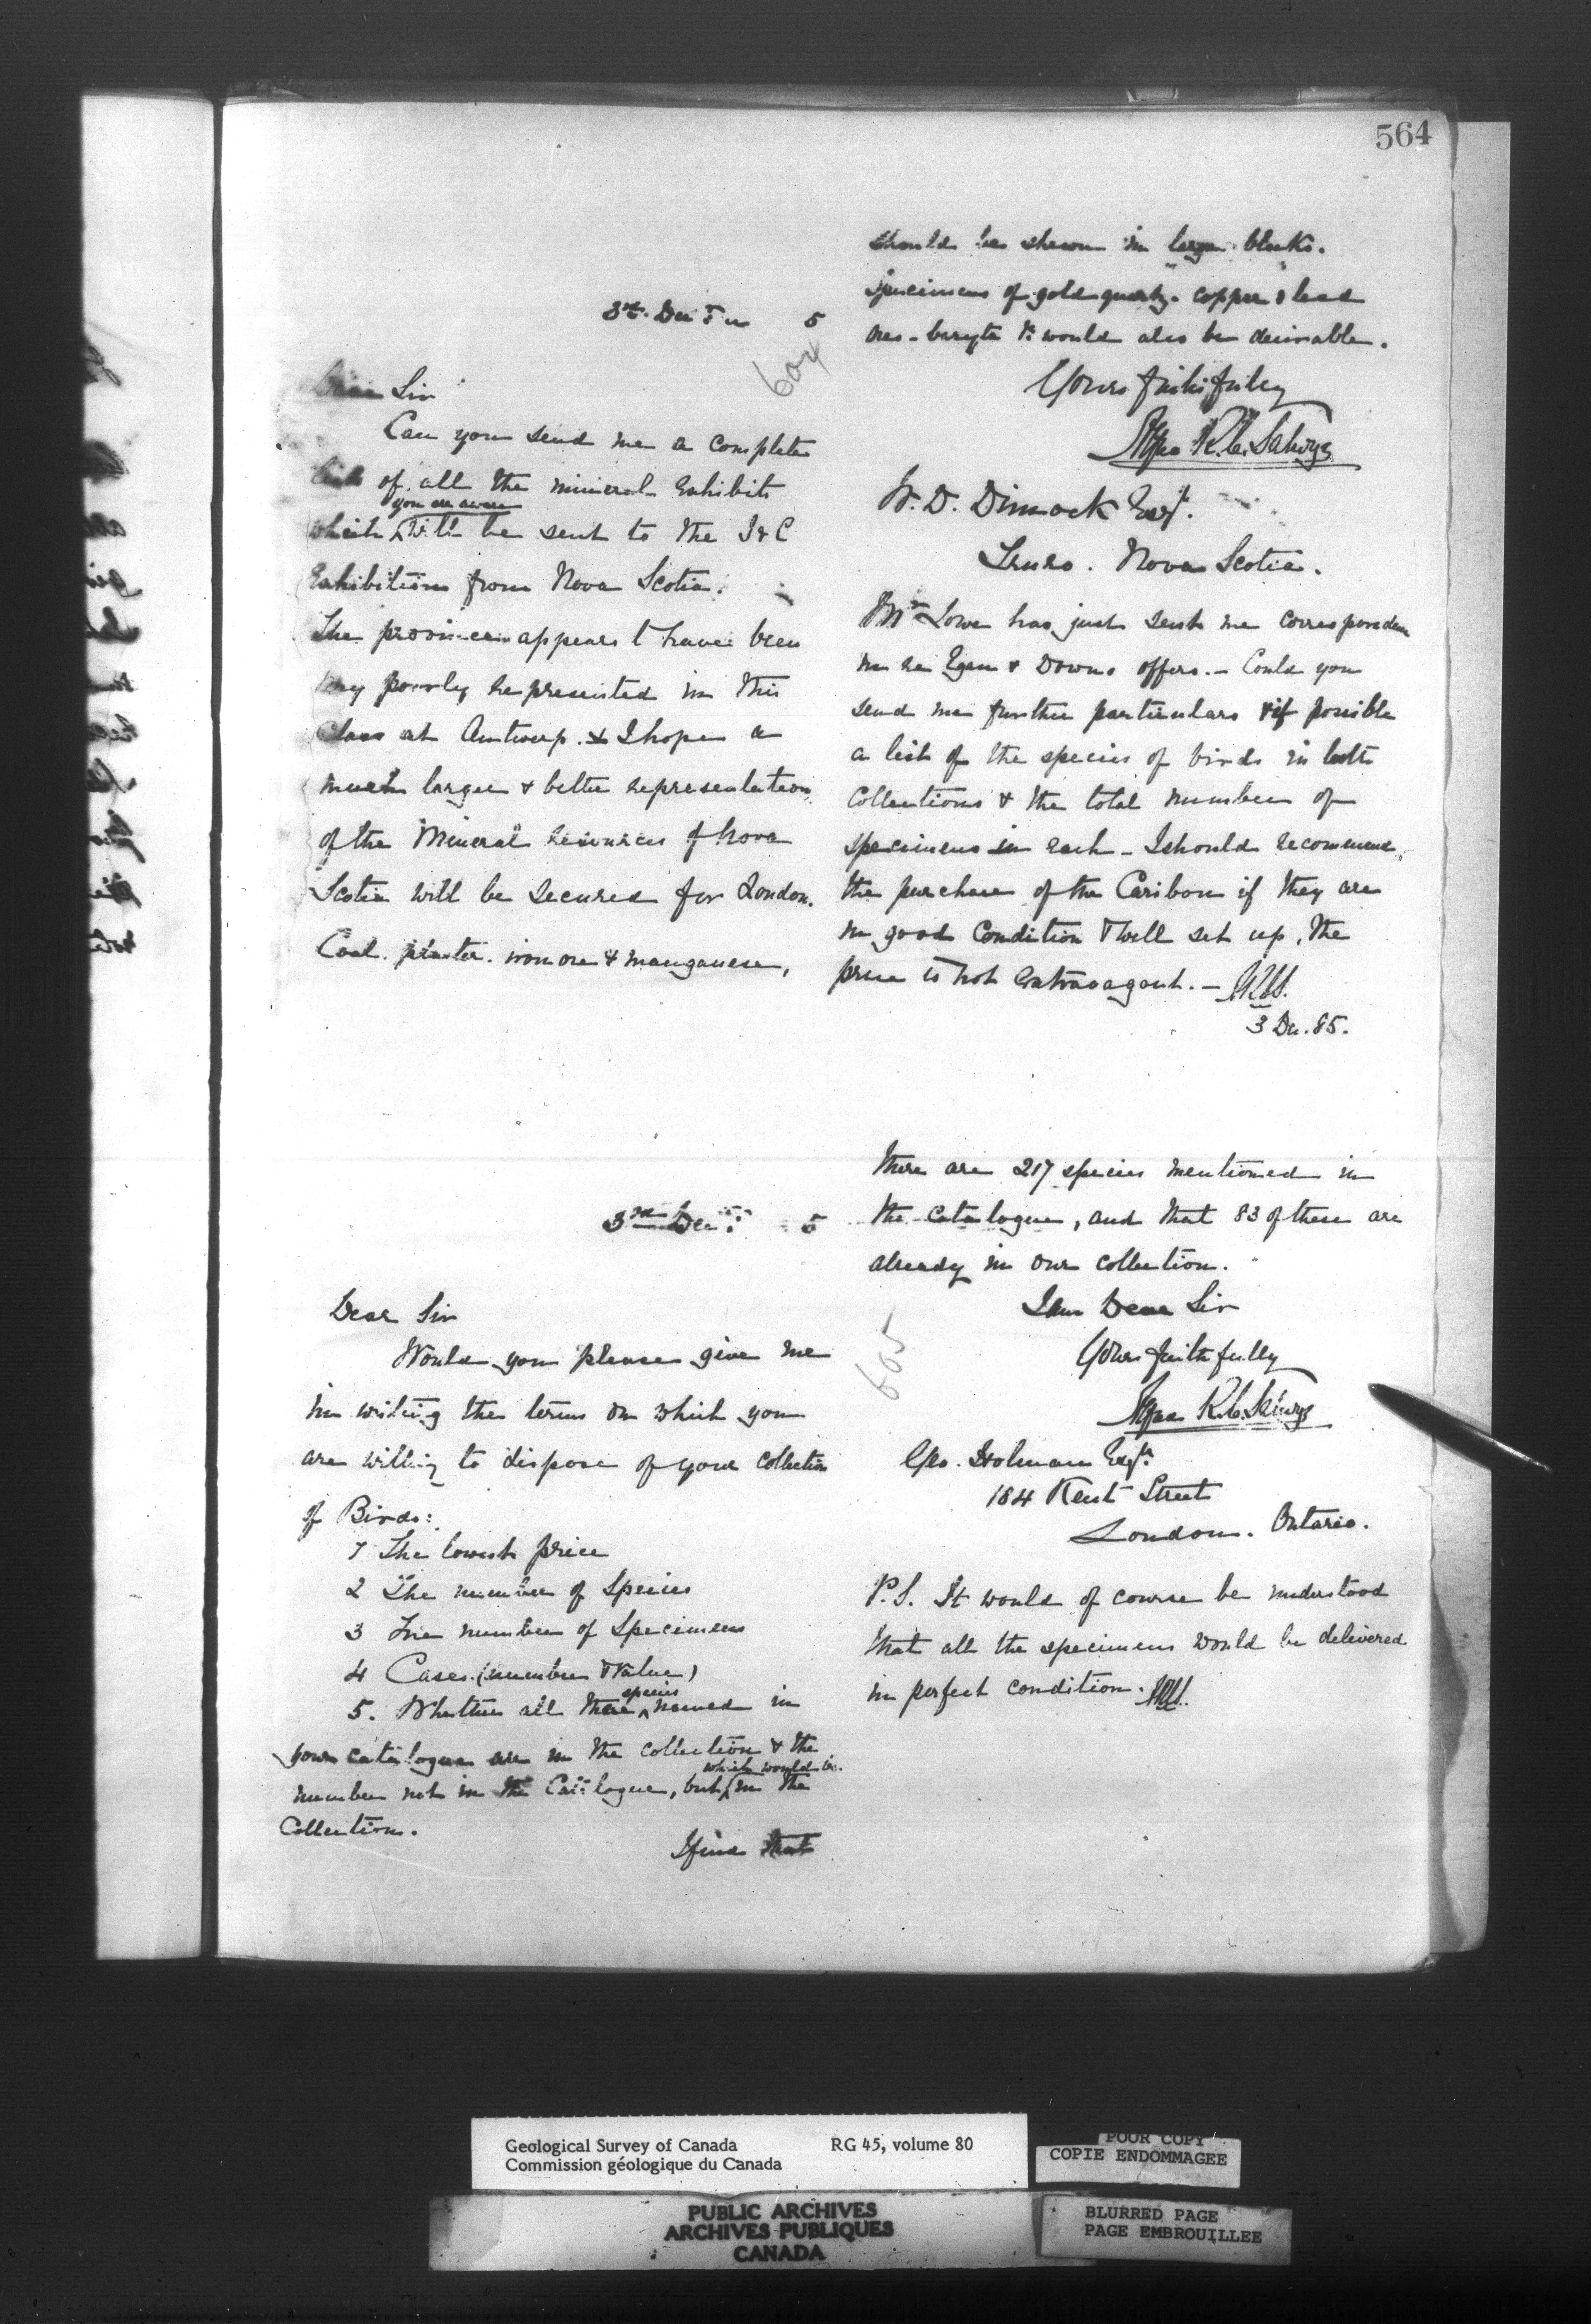 564
3rd Dec 5
604
Dear Sir
Can you send me a complete
list of all the mineral exhibits
you are aware
which ^ will be sent to the I & C
Exhibition from Nova Scotia.
The province appears to have been
very poorly represented in this
Class at Antwerp. & I hope a
much larger & better representation
of the Mineral resources of Nova
Scotia will be secured for London.
Coal. plaster. iron ore & manganese,
should be shewn in large blocks.
Specimens of gold quartz. copper & lead
ores - baryta &c would also be desirable.
Yours faithfully
Alfred R. C. Selwyn
W. D. Dimock Esqr.
Truro. Nova Scotia.
Mr Lowe has just sent me correspondence
in re Egan & Downs offers. - Could you
send me further particulars & if possible
a list of the species of birds in both
Collections & the total number of
specimens in each - I should recommend
the purchase of the Caribou if they are
in good condition & well set up, the
price is not extravagant. -
3 Dec. 85.
3rd Dec. 5
605
Dear Sir
Would you please give me
in writing the terms on which you
are willing to dispose of your collection
of Birds:
1 The lowest price
2 The number of Species
3 The number of Specimens
4 Cases (number & value)
species
5. Whether all these ^ named in
your catalogue are in the collection & the
which would be
number not in the Catalogue, but ^ in the
Collection.
I find that
there are 217 species mentioned in
the catalogue, and that 83 of these are
already in our collection.
I am Dear Sir
Yours faithfully
Alfred R. C. Selwyn
Geo. Holman Esqr.
184 Kent Street
London. Ontario.
P.S. It would of course be understood
that all the specimens would be delivered
in perfect condition.
Geological Survey of Canada RG 45, volume 80
Commission géologique du Canada
POOR COPY
COPIE ENDOMMAGEE
PUBLIC ARCHIVES
ARCHIVES PUBLIQUES
CANADA
BLURRED PAGE
PAGE EMBROUILLEE